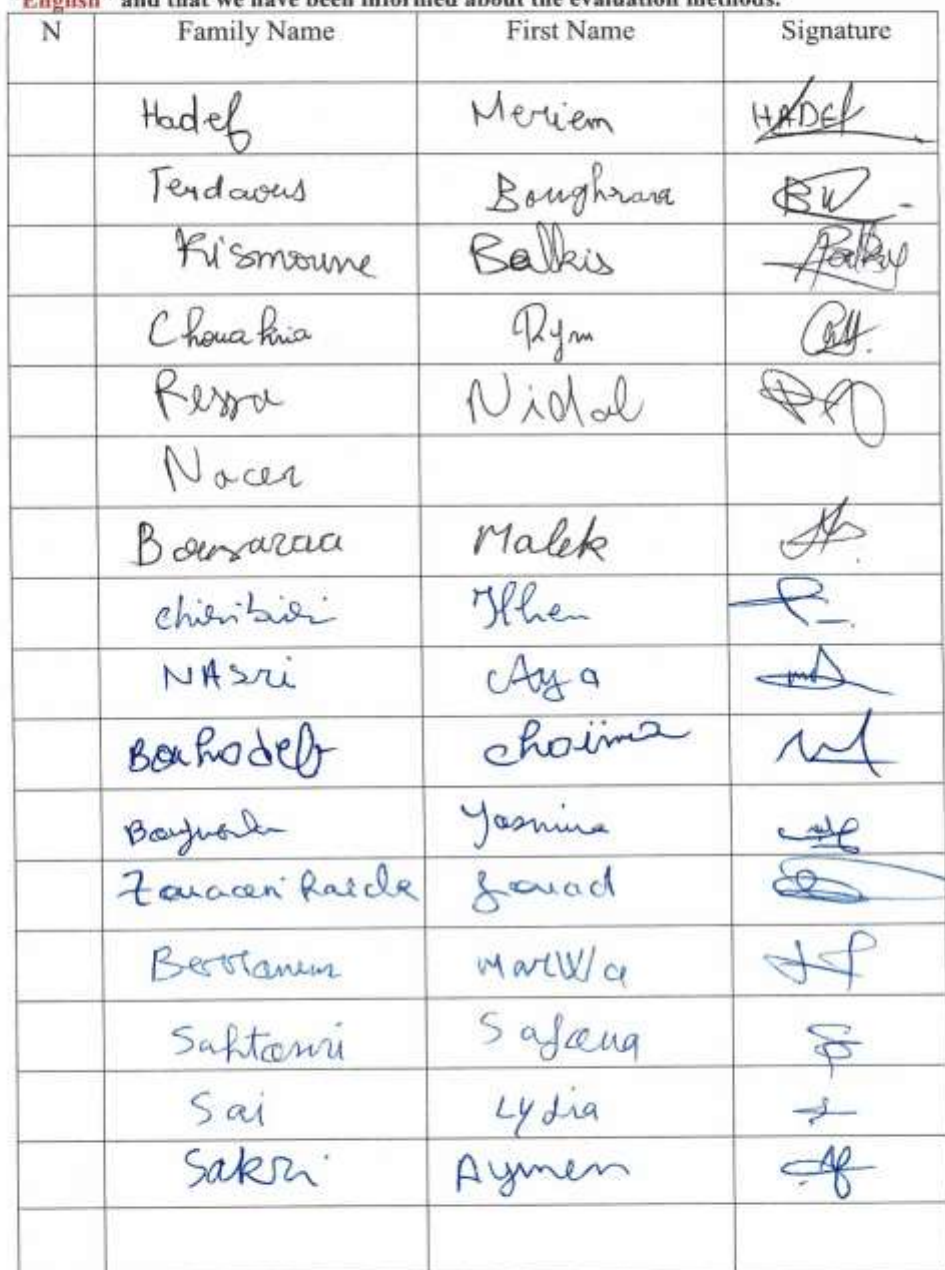 English" and that we have been informed about the evaluation methods.
N Family Name First Name Signature
Hadef Meriem HADEF
Terdaous Boughrara
Kismoune Balkis
Chouakria Rym
Ressa Nidal
Nacer
Bousaraa Malek
chiribiri Ilhem
NASri Aya
Bouhadef chaïma
Yasmina
Zouaceri Raide Fouad
Berranem MarWa
Sahtouri Safaua
Sai Lydia
Sakri Aymen